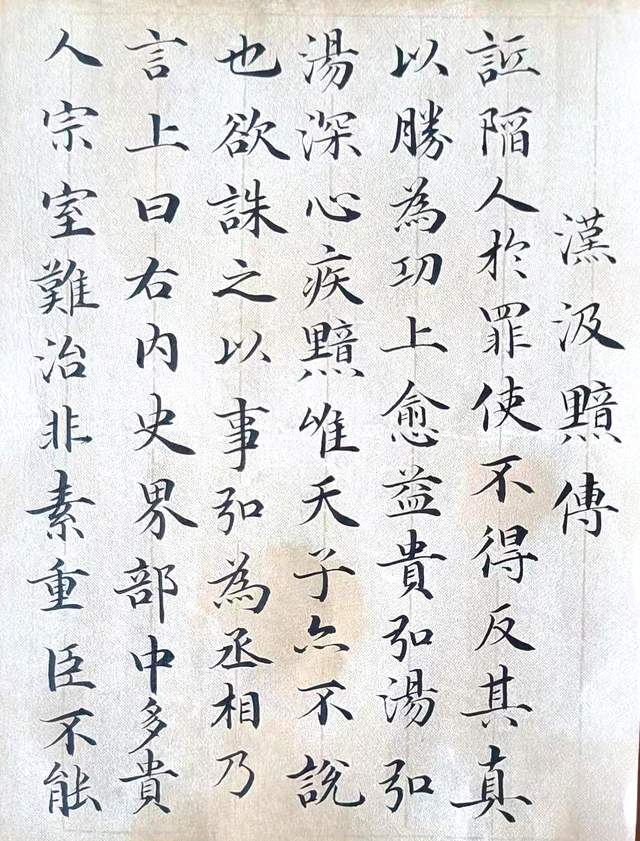 漢汲黯傳
詆陷人於罪使不得反其真
以勝為功上愈益貴弘湯弘
湯深心疾黯唯天子亦不說
也欲誅之以事弘為丞相乃
言上曰右內史界部中多貴
人宗室難治非素重臣不能